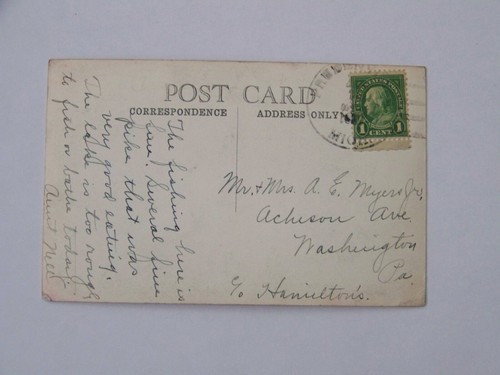 POST CARD
CORRESPONDENCE
ADDRESS ONLY
UNITED STATES POSTAGE
1 CENT 1
The fishing here is
Several fine
pike that was
very good eating.
The lake is too rough
to fish or bathe today.
Aunt Nell
Mr. + Mrs. A. E. Myers Jr.
Acheson Ave.
Washington
Pa.
c/o Hamilton's.